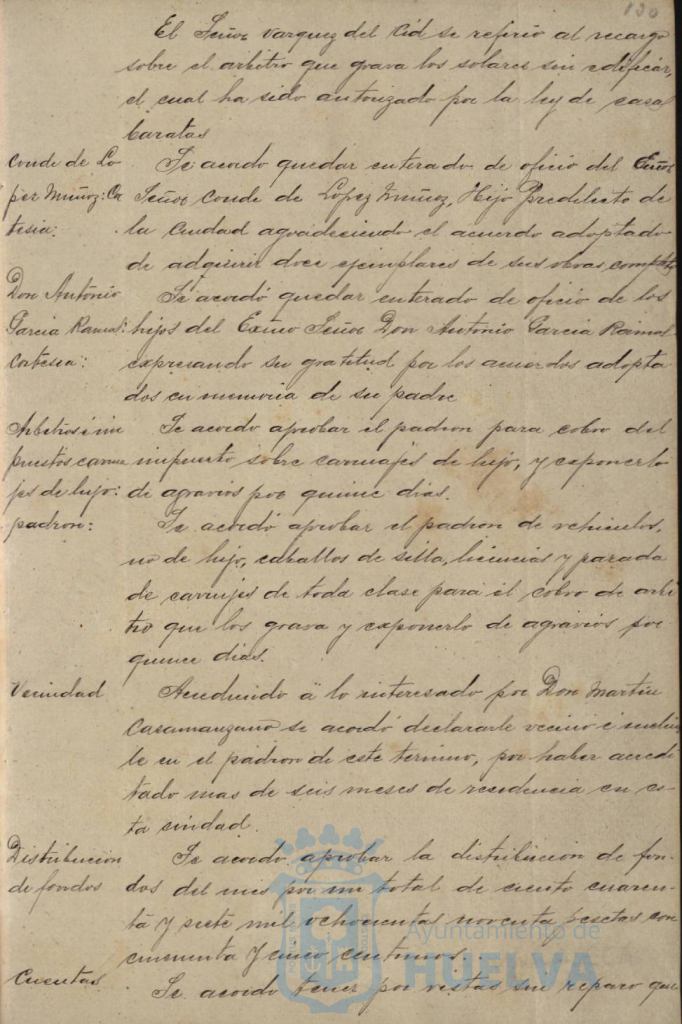 130
El Señor Vazquez del Cid se refirio al recargo
sobre el arbitrio que grava los solares sin edificar,
el cual ha sido autorizado por la ley de casas
baratas
Conde de Lo
pez Muñoz: Co
tesia:
Se acordo quedar enterado de oficio del
Señor Conde de Lopez Muñoz, Hijo Predilecto de
la Ciudad agradeciendo el acuerdo adoptado
de adquirir doce ejemplares de sus obras completas
Don Antonio
Garcia Ramos:
Cortesia:
Se acordó quedar enterado de oficio de los
hijos del Exmo Señor Don Antonio Garcia Ramos
expresando su gratitud por los acuerdos adopta
dos en memoria de su padre
Arbitrios é im
puestos carrua
jes de lujo:
padron:
Se acordo aprobar el padron para cobro del
impuesto sobre carruajes de lujo, y exponerlo
de agravios por quince dias.
Se acordó aprobar el padron de vehiculos,
no de lujo, caballos de silla, licencias y parada
de carruajes de toda clase para el cobro de arbi
trio que los grava y exponerlo de agravios por
quince dias.
Vecindad
Accediendo á lo interesado por Don Martin
Casamanzano se acordó declararle vecino é incluir
le en el padron de este termino, por haber acredi
tado mas de seis meses de residencia en es
ta ciudad.
Distribución
de fondos
Se acordo aprobar la distribución de fon
dos del mes por un total de ciento cuaren
ta y siete mil ochocientas noventa pesetas con
cincuenta y cinco centimos.
Cuentas
Se acordo tener por vistas sin reparo que
Ayuntamiento de
HUELVA